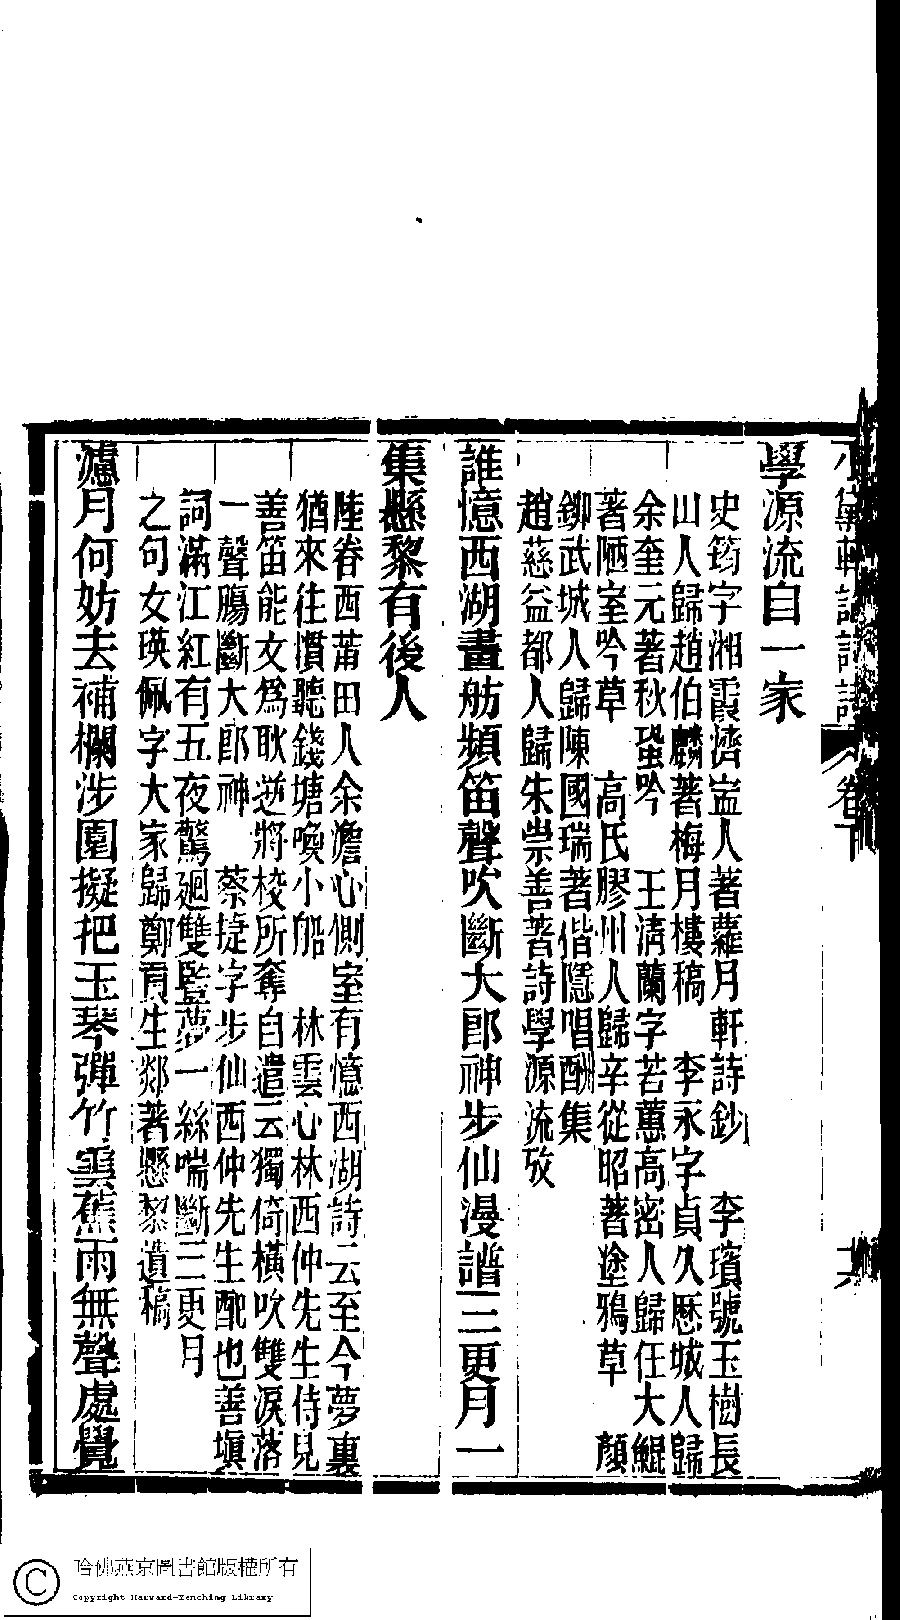 學源流自一家
史筠字湘霞濟寍人著蘿月軒詩鈔　李璸號玉樹長
山人歸趙伯麟著梅月樓稿　李永字貞久厯城人歸
余奎元著秋蛩吟　王淸蘭字若蕙高密人歸任大鯤
著陋室吟草　高氏膠州人歸辛從昭著塗鴉草　顏
鉚武城人歸陳國瑞著偕隱唱酬集
趙慈益都人歸朱崇善著詩學源流攷
誰憶西湖畫舫頻笛聲吹斷大郎神步仙漫譜三更月一
集懸黎有後人
陸眷西莆田人余澹心側室有憶西湖詩云至今夢裏
猶來往慣聽錢塘喚小船　林雲心林西仲先生侍兒
善笛能文爲耿逆將校所奪自遣云獨倚橫吹雙淚落
一聲腸斷大郎神　蔡捷字步仙西仲先生配也善塡
詞滿江紅有五夜驚廻雙豎夢一絲喘斷三更月
之句女瑛佩字大家歸鄭郯著懸黎遺稿
濾月何妨去補欄涉園擬把玉琴彈竹雲蕉雨無聲處覺
卷下
哈佛燕京圖書館版權所有
Copyright Harvard-Yenching Library